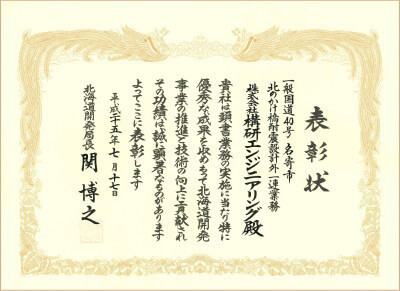 表彰状
一般国道40号 名寄市
北のかけ橋耐震設計外一連業務
株式会社構研エンジニアリング殿
貴社は頭書業務の実施に当たり特に
優秀な成果を収めもって北海道開発
事業の推進と技術の向上に貢献され
その功績は誠に顕著なものがあります
よってここに表彰します
平成二十五年七月十七日
北海道開発局長 関博之